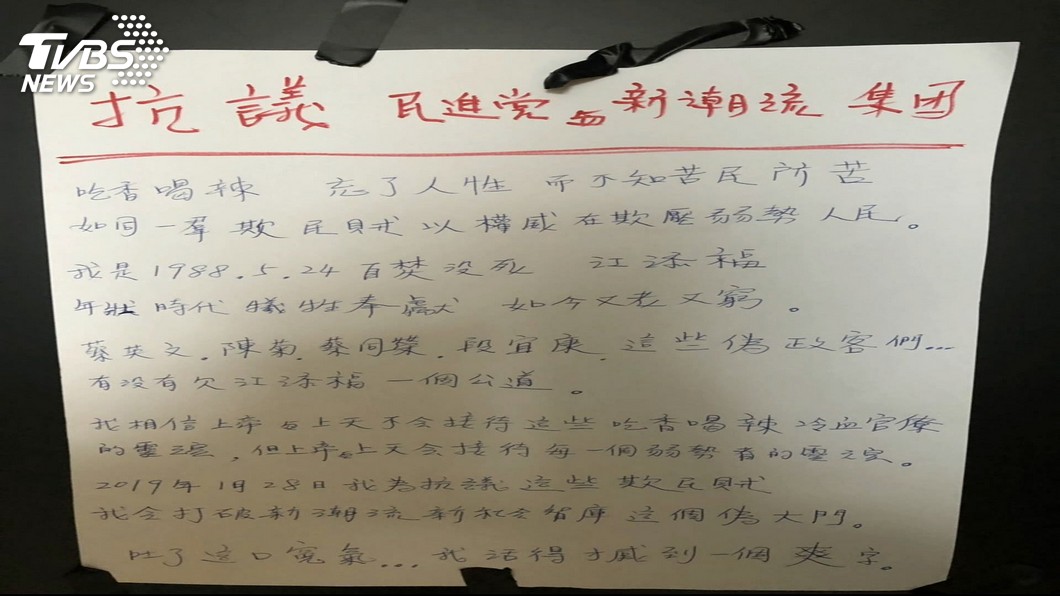 TVBS
NEWS
抗議 民進党与新潮流 集团
吃香喝辣 忘了人性 而不知苦民所苦
如同一羣欺民賊以權威在欺壓弱勢人民。
我是1988.5.24自焚没死 江添福
年壯時代犧牲奉獻 如今又老又窮。
蔡英文.陳菊.蔡同榮.段宜康.這些偽政客們...
有没有欠江添福一個公道。
我相信上帝与上天不会接待這些吃香喝辣冷血官僚
的靈魂,但上帝与上天会接待每一個弱勢者的靈魂。
2019年1月28日我為抗議這些欺民賊
我会打破新潮流新社会智庫這個偽大門。
吐了這口寃氣...我活得才感到一個爽字。